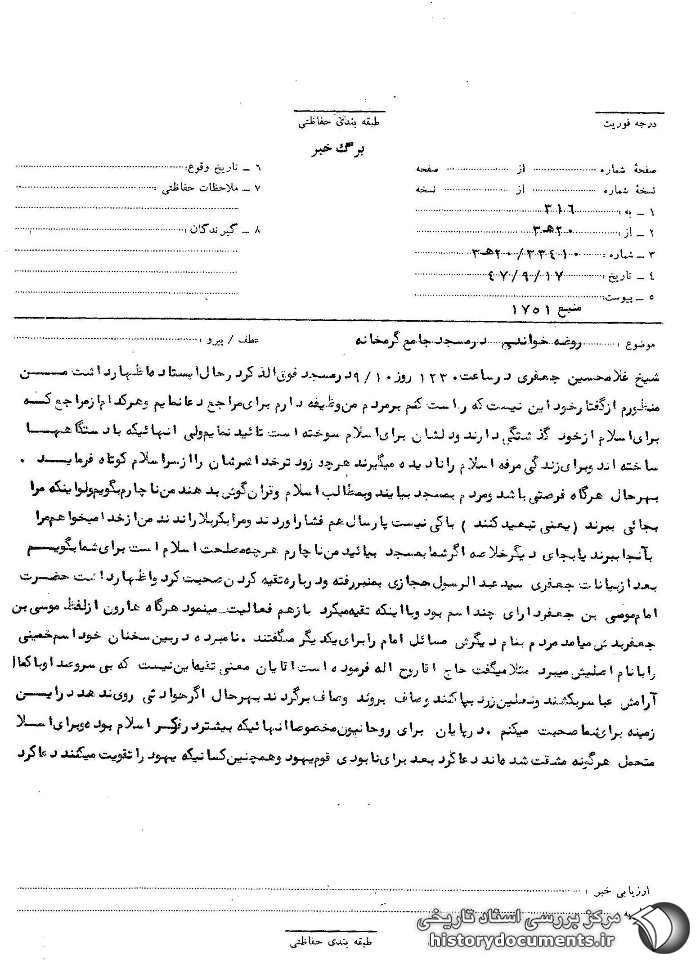 درجه فوریت
طبقه بندی حفاظتی
برگ خبر
صفحهٔ شماره از صفحه
نسخهٔ شماره از نسخه
۱ ـ به : ۳۱۶
۲ ـ از : ۲۰هـ۳
۳ ـ شماره : ۲۰/۳۳۴۱۰هـ۳
۴ ـ تاریخ : ۴۷/۹/۱۷
۵ ـ پیوست:
منبع ۱۷۵۱
۶ ـ تاریخ وقوع:
۷ ـ ملاحظات حفاظتی :
۸ ـ گیرندگان :
موضوع : روضه خوانی در مسجد جامع گرمخانه عطف / پیرو :
شیخ غلامحسین جعفری در ساعت ۱۲۳۰ روز ۹/۱۰ در مسجد فوق الذکر در حال ایستاده اظهار داشت من
منظورم از گفتار خود این نیست که راست کنم بر مردم من وظیفه دارم برای مراجع دعا نمایم و هر کدام از مراجع که
برای اسلام از خود گذشتگی دارند و دلشان برای اسلام سوخته است تائید نمایم ولی انهائیکه با دستگاهها
ساخته اند و برای زندگی مرفه اسلام را نادیده میگیرند هر چه زود تر خدا شرشان را از سر اسلام کوتاه فرماید .
بهر حال هر گاه فرصتی باشد و مردم بمسجد بیایند و بمطالب اسلام و قران گوش بدهند من ناچارم بگویم ولو اینکه مرا
بجائی ببرند ( یعنی تبعید کنند ) باکی نیست پارسال هم فشار اوردند و مرا بکربلا راندند من از خدا میخواهم مرا
بآنجا ببرند یا بجای دیگر خلاصه اگر شما بمسجد بیائید من ناچارم هر چه مصلحت اسلام است برای شما بگویم
بعد از بیانات جعفری سید عبدالرسول حجازی بمنبر رفته و درباره تقیه کردن صحبت کرد و اظهار داشت حضرت
امام موسی بن جعفر دارای چند اسم بود و با اینکه تقیه میکرد باز هم فعالیت مینمود هر گاه هارون از لفظ موسی بن
جعفر بدش میامد مردم بنام دیگرش مسائل امام را برای یکدیگر میگفتند . نامبرده در بین سخنان خود اسم خمینی
را با نام اصلیش میبرد مثلا میگفت حاج اقا روح اله فرموده است اقایان معنی تقیه این نیست که بی سر و صدا و با کمال
آرامش عبا سر بکشند و نعلین زرد بپا کنند و صاف بروند و صاف برگردند بهر حال اگر حوادثی روی ندهد در این
زمینه برای شما صحبت میکنم . در پایان برای روحانیون مخصوصا انهائیکه بیشتر در فکر اسلام بوده و برای اسلا
متحمل هر گونه مشقت شده اند دعا کرد بعد برای نابودی قوم یهود و همچنین کسانیکه یهود را تقویت میکنند دعا کرد
ارزیابی خبر :
طبقه بندی حفاظتی
مرکز بررسی اسناد تاریخی
historydocuments.ir